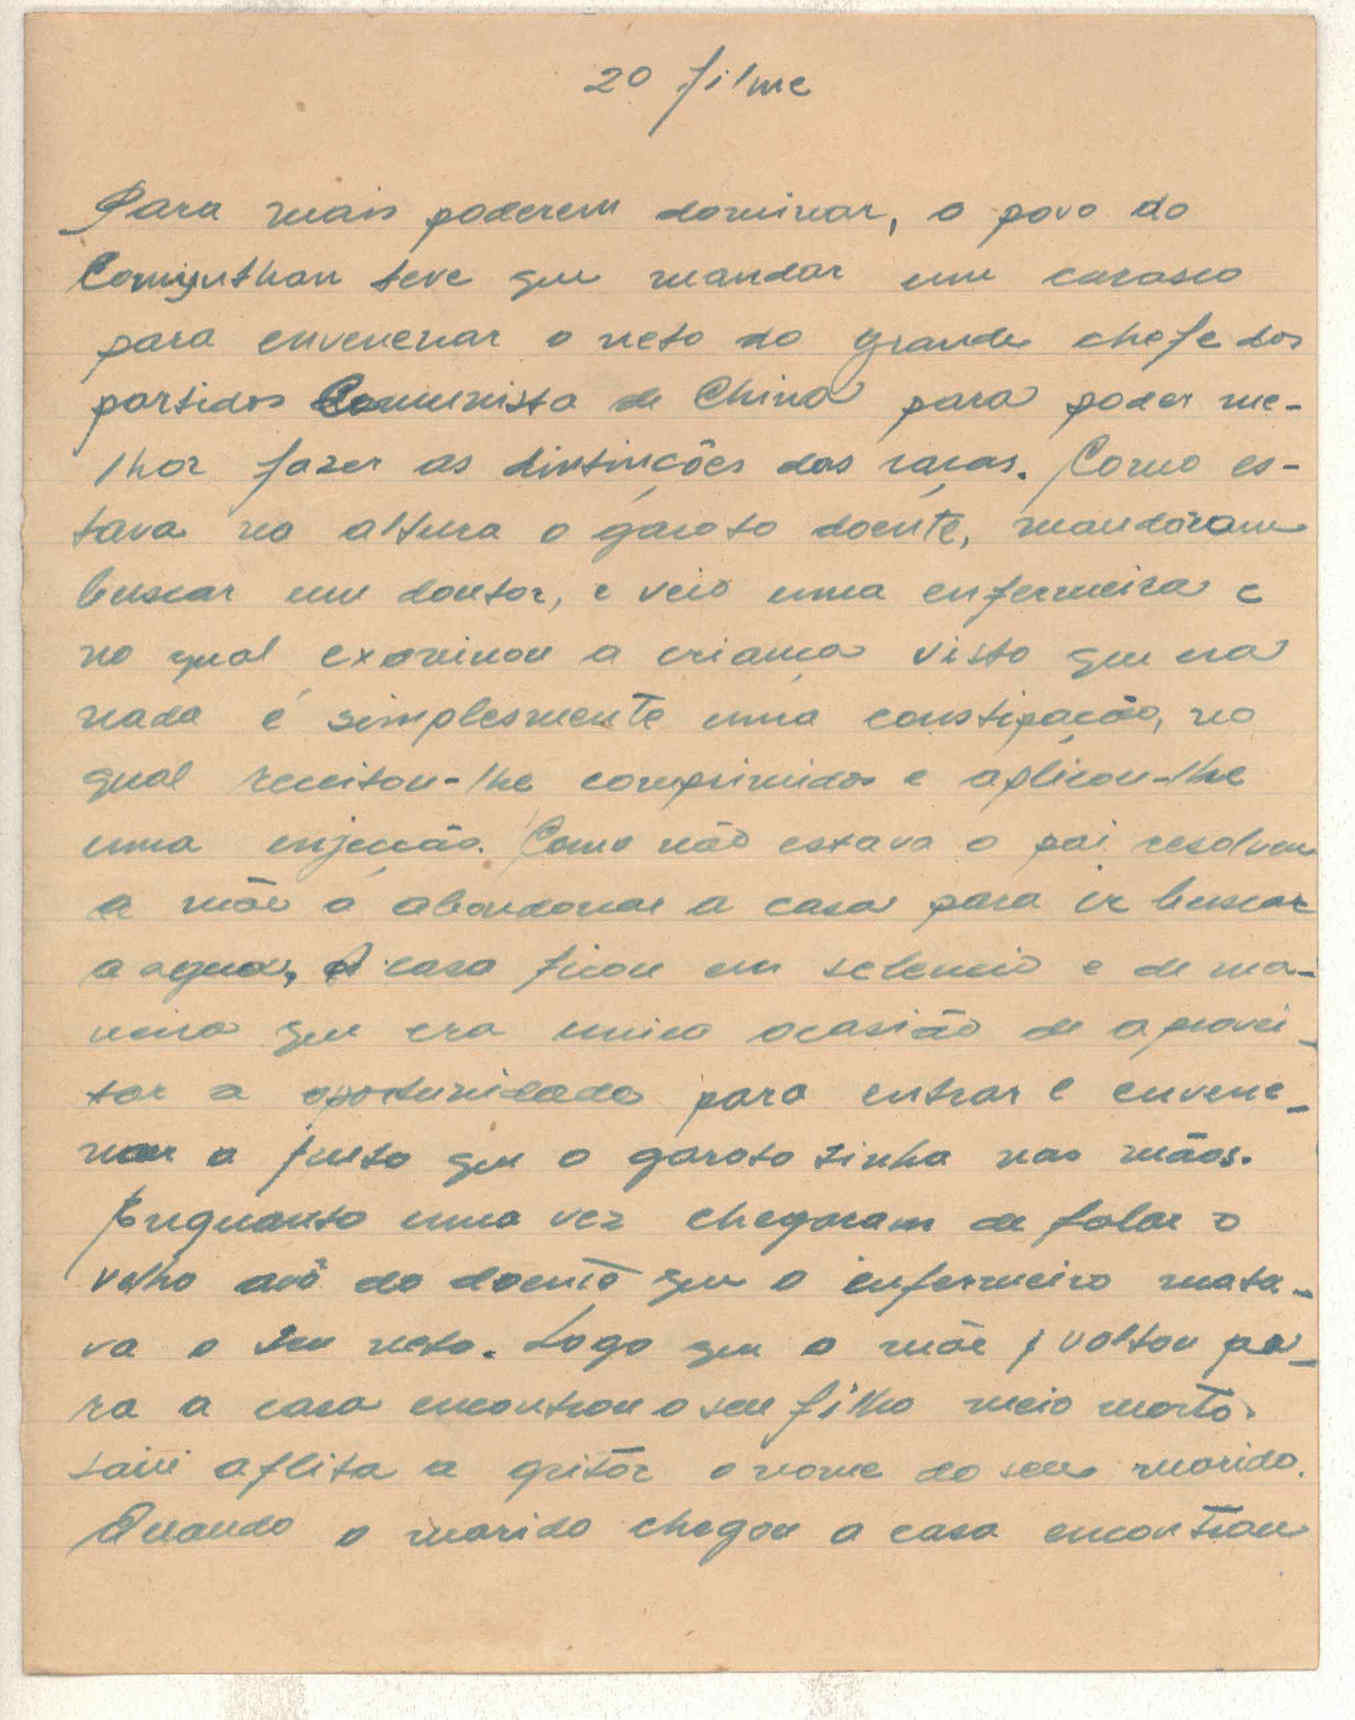 2º filme
Para mais poderem dominar, o povo do
Comiguthan teve que mandar um carasco
para envenenar o neto do grande chefe dos
partidos Comunista de China para poder me-
lhor fazer as distinções das raças. Como es-
tava na altura o garoto doente, mandáram
buscar um doutor, e veio uma enfermeira e
no qual examinou a criança visto que era
nada é simplesmente uma constipação, no
qual receitou-lhe comprimidos e aplicou-lhe
uma injecção. Como não estava o pai resolveu
a mãe a abandonar a casa para ir buscar
a agua, A casa ficou em selencio e de ma-
neira que era unica ocasião de aprovei-
tar a oportunidade para entrar e envene-
nar a fruto que o garoto tinha nas mãos.
Enquanto uma vez chegaram de falar o
velho avô do doente que o infermeiro mata-
va o seu neto. Logo que a mãe voltou pa-
ra a casa encontrou o seu filho meio morto.
saiu aflita a gritar o nome do seu marido.
Quando o marido chegou a casa encontrou